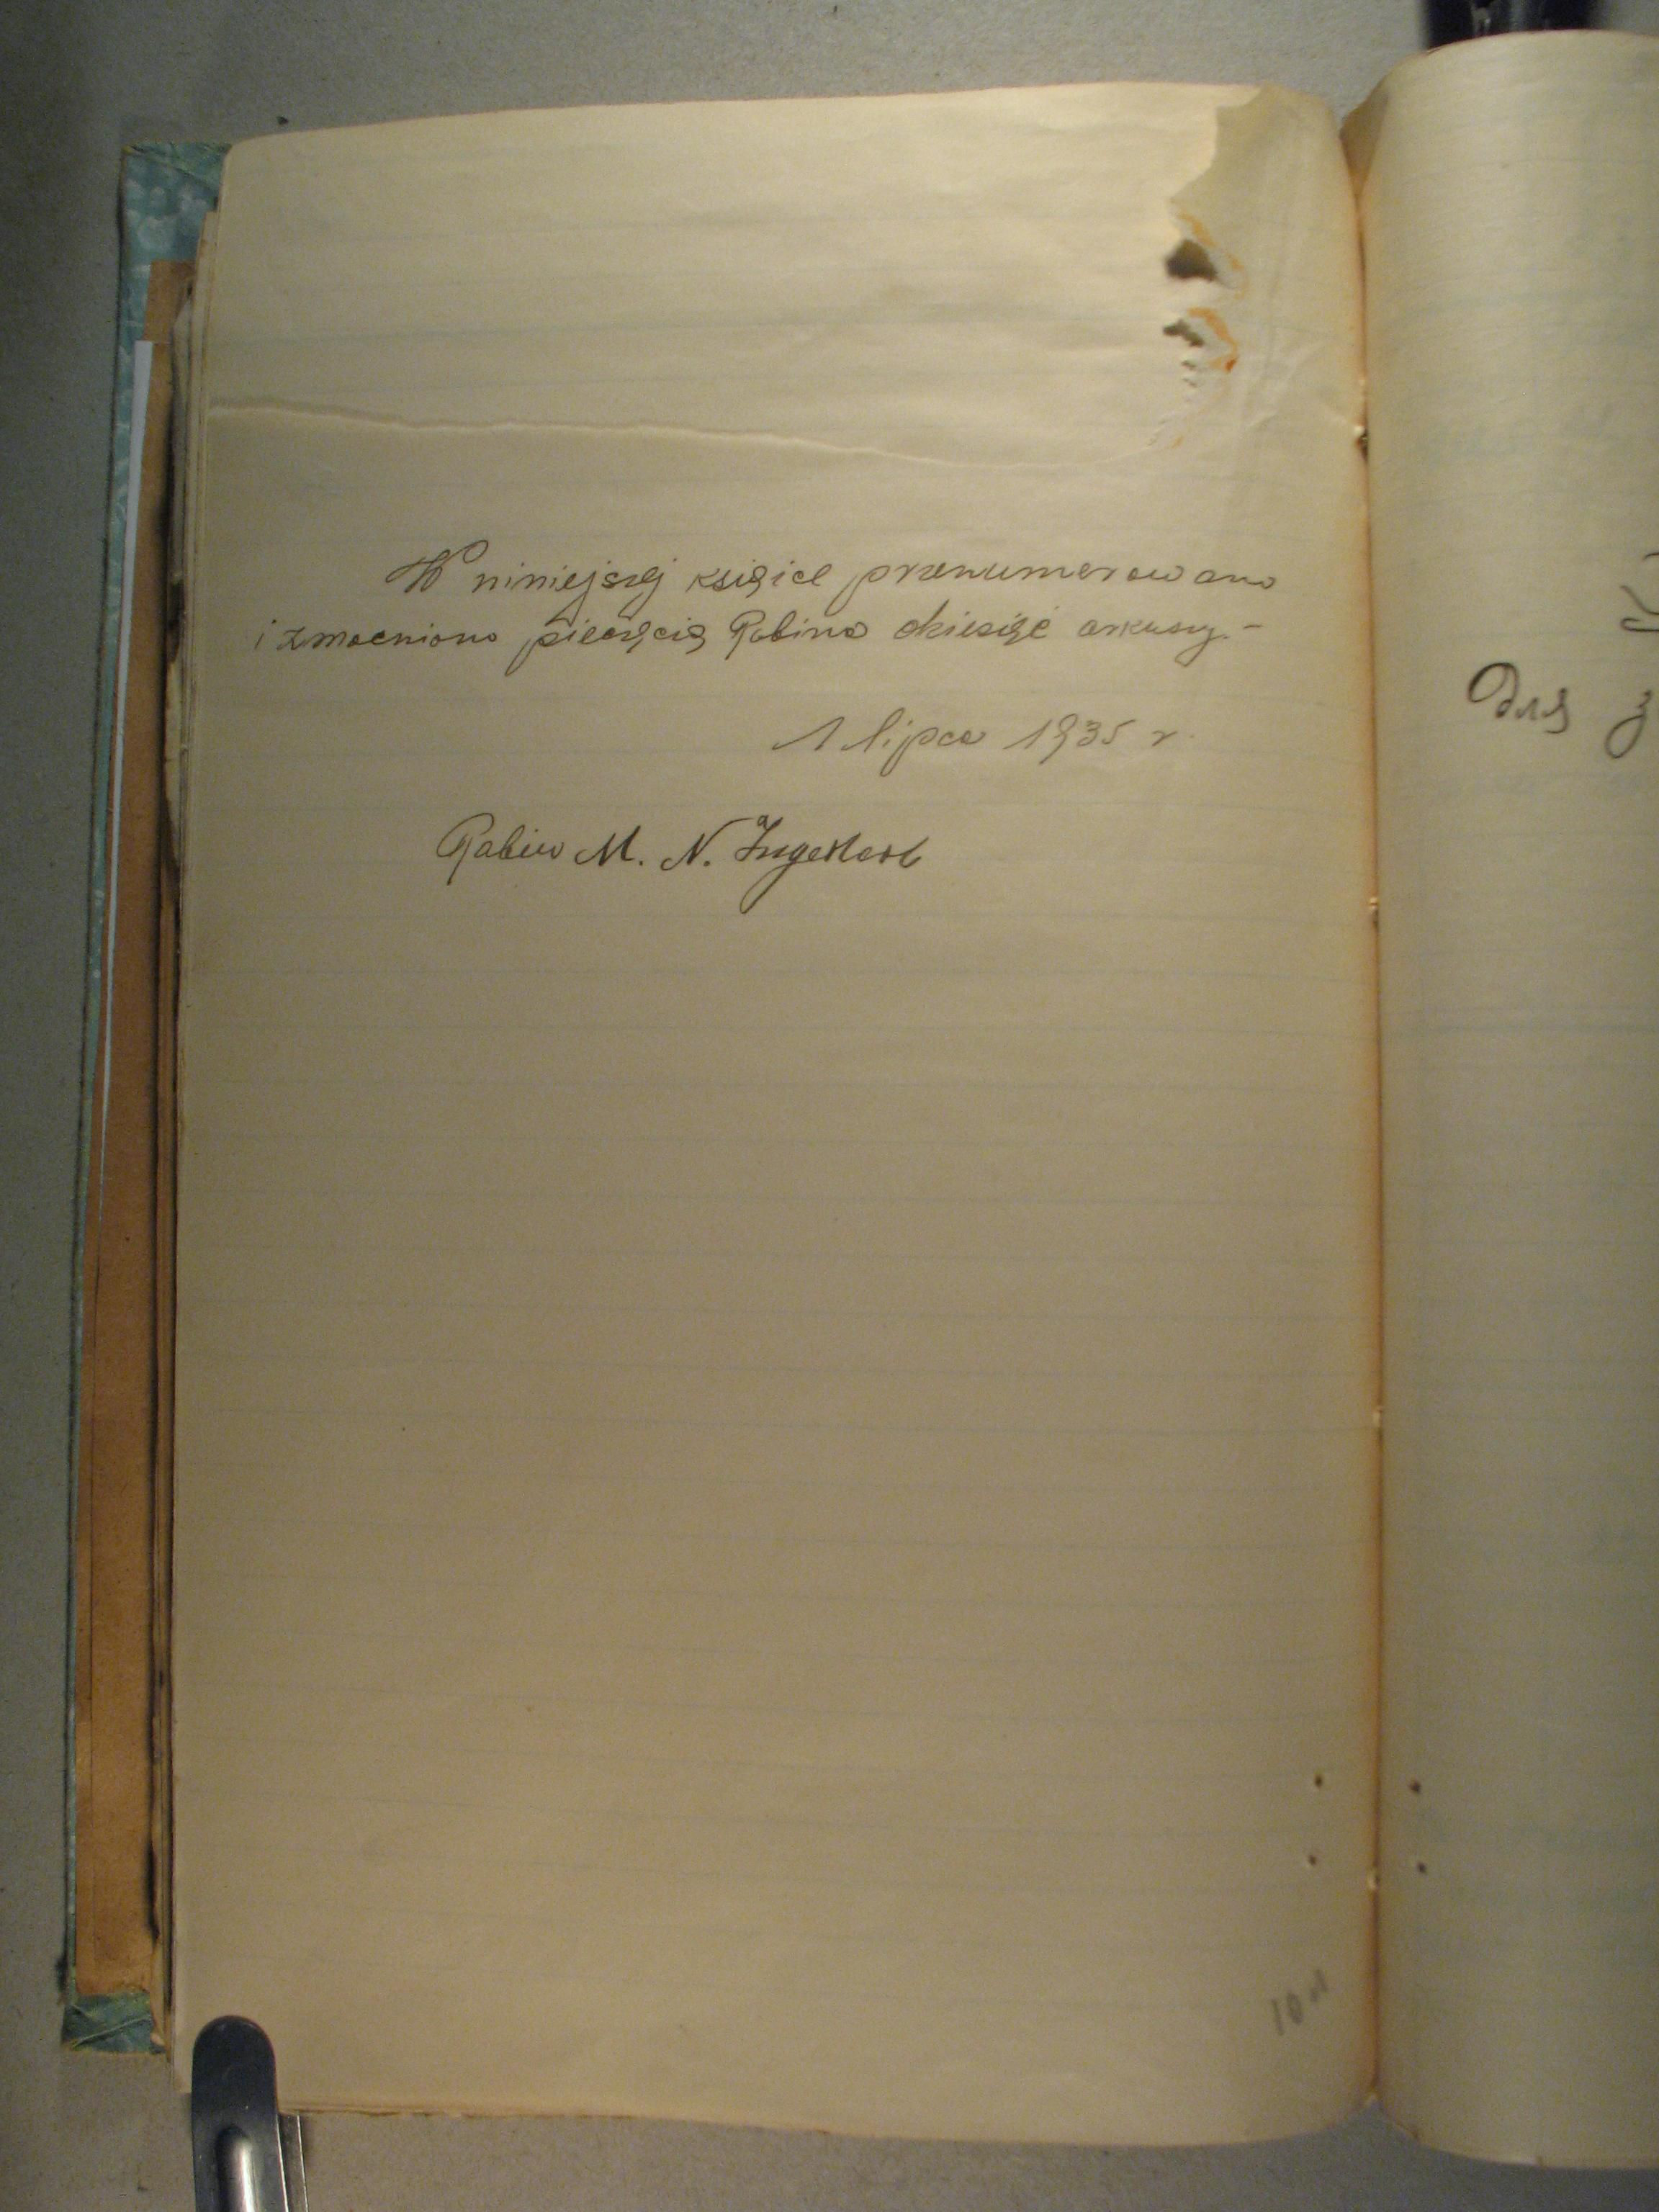 W niniejszej księice przenumerowano
i zmocniono pieczęcią Rabina dziesięć arkuszy.-
1 lipca 1935 r.
Rabin M. N.
Для
10 л